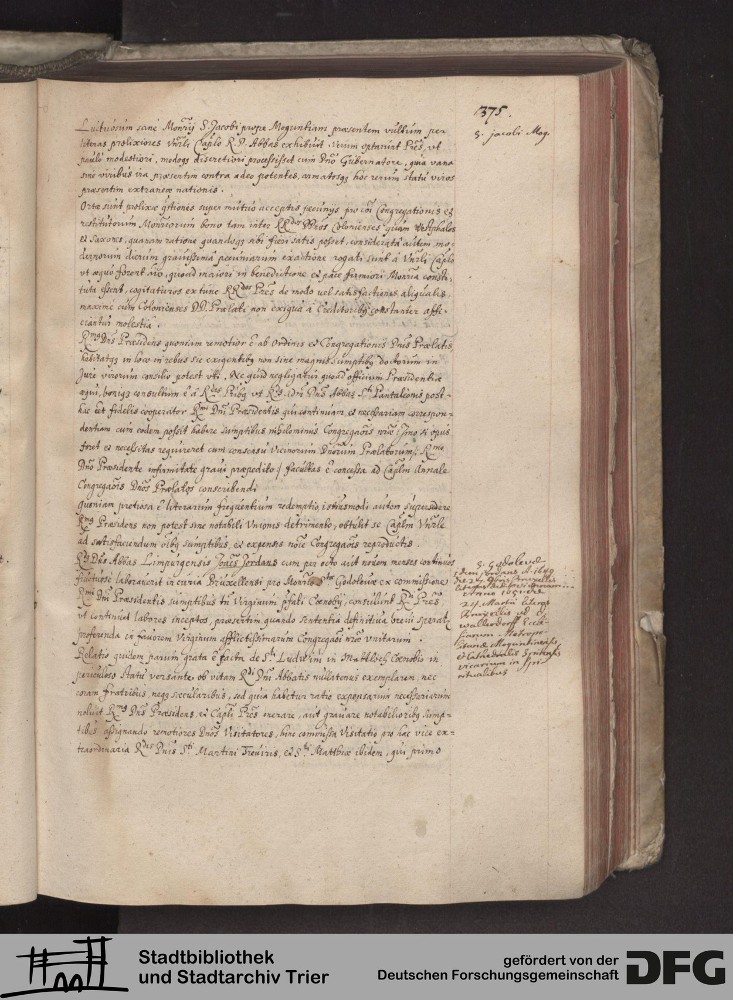 1375.
S. Jacobi Mog.
Luctuosum sane Monrij S. Jacobi prope Moguntiam praesentem vultum per
literas prolixiores Vnrli Caplo R. D. Abbas exhibuit. Vnum optarunt Pres, ut
pauló modestiori, modoq; discretiori processisset cum Dno Gubernatore, quia vana
sine viribus ira praesertim contra adeo potentes, armatosq; hoc rerum statu viros
praesertim extraneae nationis.
Ortae sunt prolixae qstiones super mutuó acceptis pecunijs pro coi Congregationis et
restitutorum Monriorum bono tam inter RRdos DDnos Colonienses quam Westphalos
et Saxones, quanam ratione quandoq; sibi fieri satis posset, considerata autem mo-
dernorum dierum gravissima pecuniarum exactione rogati sunt á Vnrli Caplo
ut aequo forent aio, quousq; maiori in benedictione et pace firmiori Monria consti-
tuta essent, cogitaturos ex tunc RRdos Pres de modo vel satisfactionis aliqualis,
maxime cum Colonienses DD. Praelati non exigua á Creditoribq constanter affi-
ciantur molestia.
Rmus Dns Praesidens quoniam remotior é ab Ordinis et Congregationis Dnis Praelatis,
habitatq; in loco in rebus sic exigentibq non sine magnis sumptibq doctorum in
Jure virorum consilio potest uti, Ne quid negligatur quoad officium Praesidentiae
aequi, boniq; consultum é á Rdis Ptibq ut Rdus Adm Dnus Abbas Sti Pantaleonis post-
hac uti fidelis cooperator Rmi Dni Praesidentis qui continuam, et necessariam correspon-
dentiam cum eodem possit habere sumptibus nihilominus Congregaois nrae, Jmo si opus
foret et necessitas requireret cum consensu Vicinorum Dnorum Praelatorum /: Rmo
Dno Praesidente infirmitate gravi praepedito :/ facultas é concessa ad Caplm Annale
Congregaois Dnos Praelatos conscribendi
quoniam pretiosa é literarum frequentium redemptio, istiusmodi autem supersedere
Rmus Praesidens non potest sine notabili Unionis detrimento, obtulit se Caplm Vnrle
ad satisfaciendum oibq sumptibus, et expensis noie Congregaois reproductis.
Rdus Dnus Abbas Limpurgensis Joaes Jordans cum per octo aut nouem menses continuos
fructuose laborauerit in curia Bruxellensi pro Monrio Stae Godoleuae ex commissione
Rmi Dni Praesidentis sumptibus tn Virginum pfati Coenobij, consulunt Rdi Pres
ut continuet labores inceptos, praesertim quando sententia definitiua breui sperat
proferenda in fauorem Virginum afflictissimarum Congregaoi nrae unitarum.
Relatio quidem parum grata é facta de Sti Ludwini in Mattlach Coenobio in
periculoso statu versante ob vitam Rdi Dni Abbatis nullatenus exemplarem, nec
coram fratribus, neq; saecularibus, sed quia habetur ratio expensarum necessariarum
noluit Rmus Dnus Praesidens, et Capli Pres onerare, aut grauare notabilioribq sump-
tibus, assignando remotiores Dnos Visitatores, hinc commissa Visitatio pro hac vice ex-
traordinaria Rdis Dnis Sti Martini Treuiris, et Sti Matthiae ibidem, qui primo
S. Godolevae
Martii
Bruxellis ab
wallerdorff Eccl-
siarum Metropo-
litanae Moguntinensis
et Cathedralis Spirensis
vicarium in Spi-
ritualibus
Stadtbibliothek
und Stadtarchiv Trier
gefördert von der
Deutschen Forschungsgemeinschaft
DFG